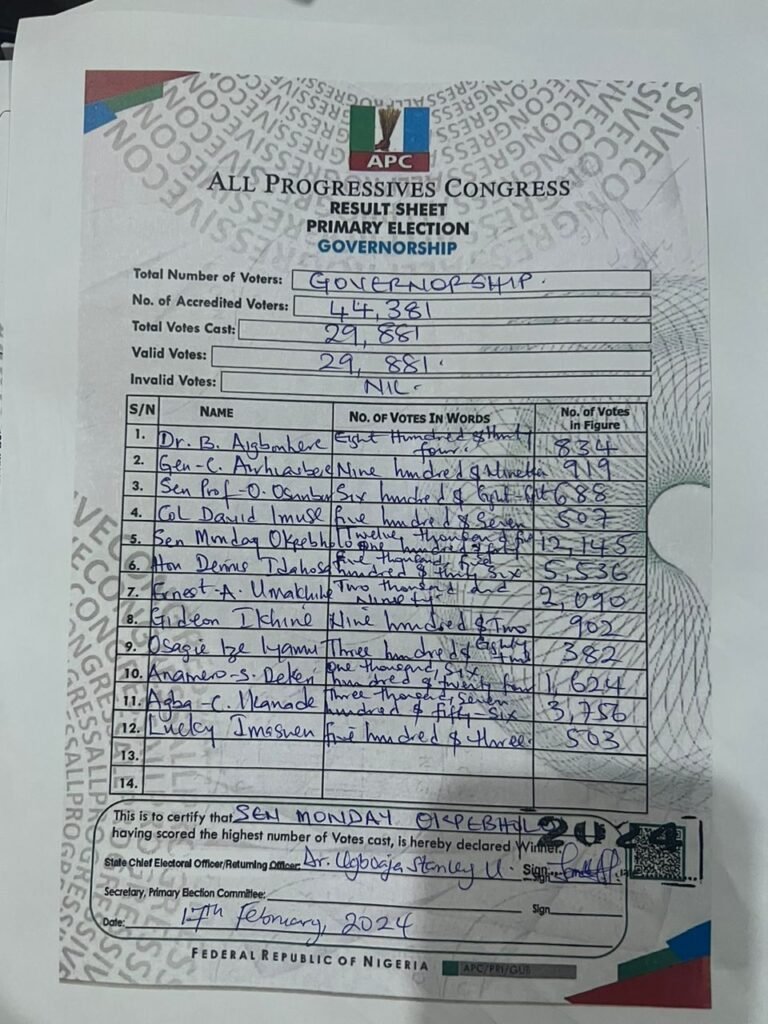 APC
ALL PROGRESSIVES CONGRESS
RESULT SHEET
PRIMARY ELECTION
GOVERNORSHIP
Total Number of Voters: GOVERNORSHIP.
No. of Accredited Voters: 44,381
Total Votes Cast: 29,881
Valid Votes: 29,881.
Invalid Votes: NIL.
S/N NAME NO. OF VOTES IN WORDS No. of Votes in Figure
1. Dr. B. Eight Hundred & thirty four. 834
2. Gen. C. Nine hundred & Nineteen 919
3. Sen Prof. O. Six hundred & Eight 688
4. Col David Imuse five hundred & Seven 507
5. Sen Monday Okpebholo Twelve thousand One hundred & forty 12,145
6. Hon Dennis Idahosa five thousand, five hundred & thirty Six 5,536
7. Ernest A. Umakhihe Two thousand and Ninety. 2,090
8. Gideon Ikhine Nine hundred & Two 902
9. Osagie Ize Iyamu Three hundred & Eighty Two 382
10. Anamero S. Dekeri One thousand, Six hundred & twenty four 1,624
11. Agba C. Three thousand, Seven hundred & fifty-Six 3,756
12. Lucky Imasuen five hundred & three. 503
13.
14.
This is to certify that SEN MONDAY OKPEBHOLO
having scored the highest number of Votes cast, is hereby declared Winner.
2024
State Chief Electoral Officer/Returning Officer: Dr. Ugboaja Stanley U. Sign
Secretary, Primary Election Committee: Sign
Date: 17th February, 2024
FEDERAL REPUBLIC OF NIGERIA APC/PRI/GUB